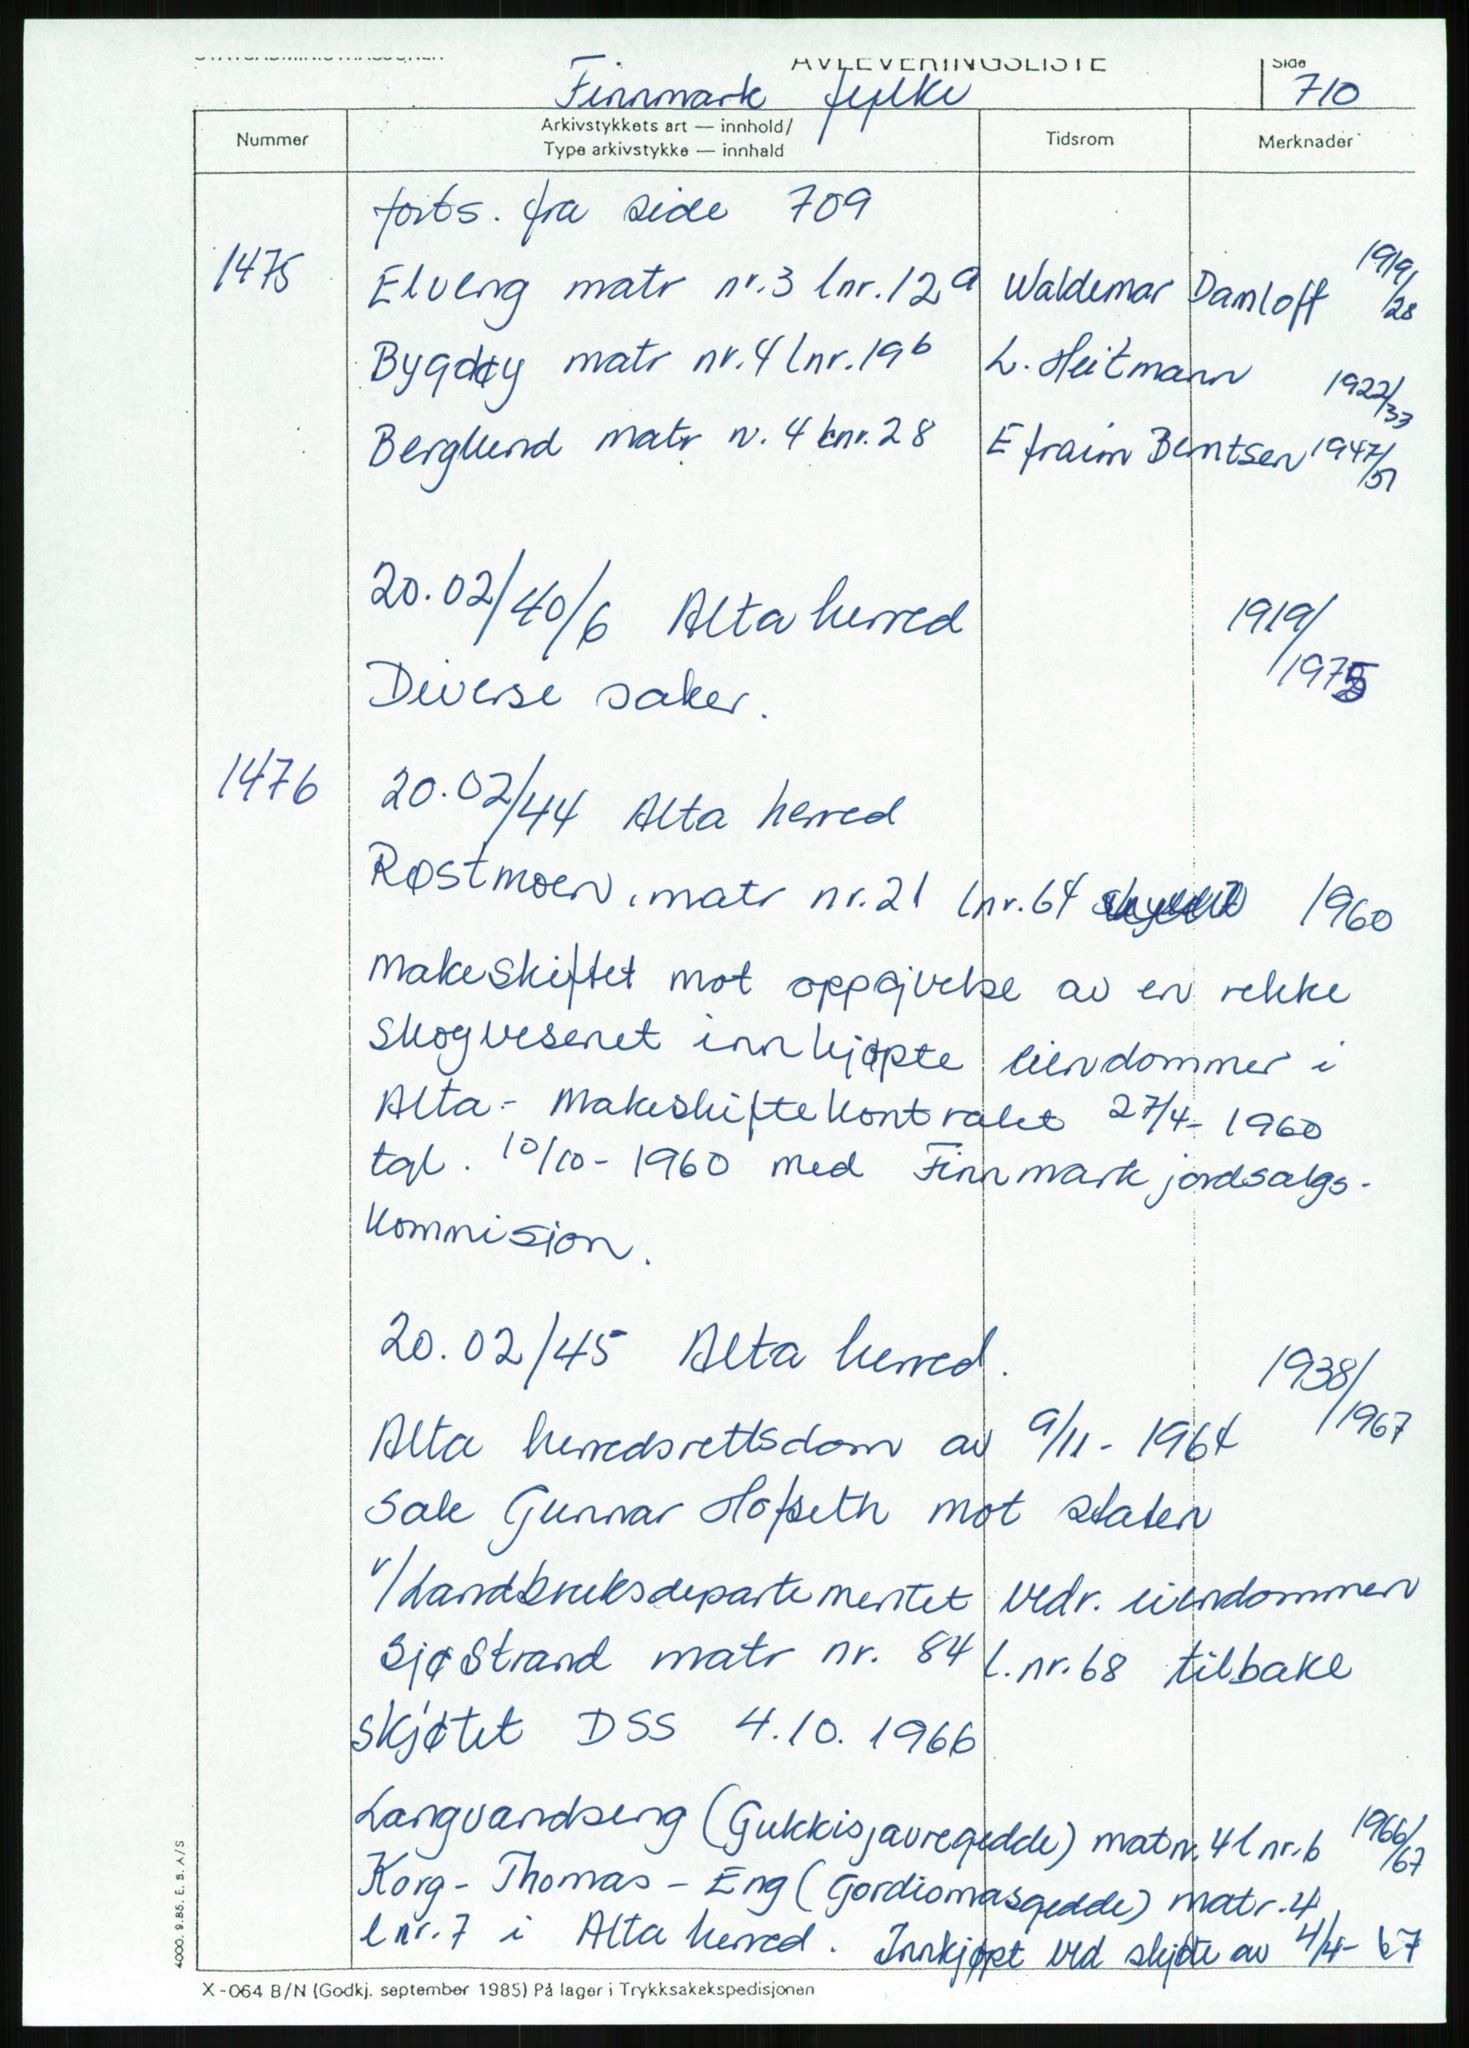 STATSADMINISTRASJONEN AVLEVERINGSLISTE Side
Finnmark fylke 710
Nummer Arkivstykkets art — innhold/ Type arkivstykke — innhald Tidsrom Merknader
forts. fra side 709
1475 Elveng matr nr.3 lnr.12a Waldemar Damloff 1919/28
Bygdøy matr nr.4 lnr.19b L. Heitmann 1922/33
Berglund matr n. 4 lnr.28 Efraim Bentsen 1947/51
20.02/40/6 Alta herred 1919/1975
Diverse saker.
1476 20.02/44 Alta herred
Røstmoen, matr nr.21 lnr.64 1960
makeskiftet mot oppgivelse av en rekke
skogvesenet innkjøpte eiendommer i
Alta - Makeskiftekontrakt 27/4- 1960
tgl. 10/10- 1960 med Finnmark jordsalgs-
kommisjon.
20.02/45 Alta herred. 1938/1967
Alta herredsrettsdom av 9/11 - 1964
sak Gunnar Hofseth mot staten
v/Landbruksdepartementet vedr. eiendommen
Sjøstrand matr nr. 84 l.nr.68 tilbake
skjøtet DSS 4.10. 1966
Langvandseng (Gukkisjavregedde) matr. 4 lnr.6 1966/67
Korg - Thomas - Eng (Gordiomasgedde) matr.4
lnr.7 i Alta herred. Innkjøpt ved skjøte av 4/4- 67
4000. 9.85. E. B. A/S
X-064 B/N (Godkj. september 1985) På lager i Trykksakekspedisjonen